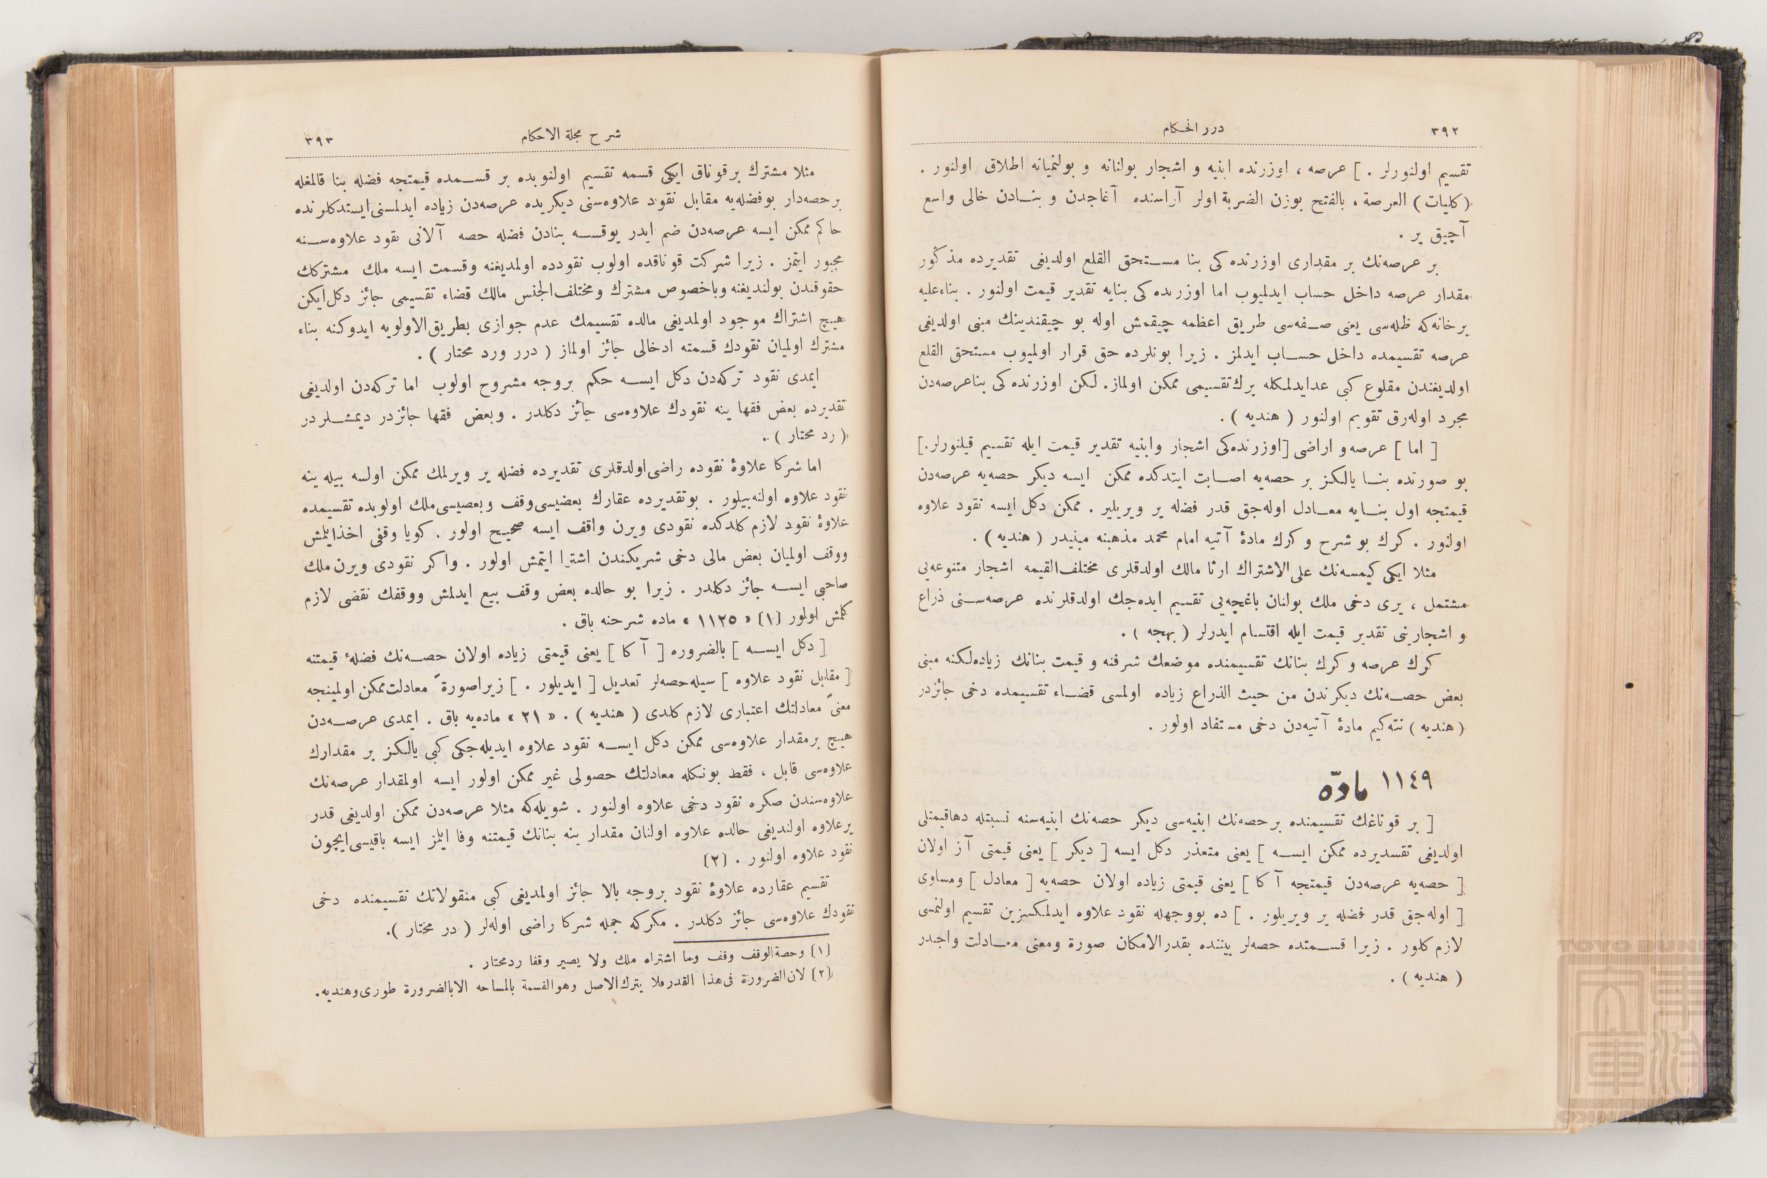 ٣٩٢
درر الحكام
تقسيم اولنورلر . ] عرصه ، اوزرنده ابنيه و اشجار بولنانه و بولنميانه اطلاق اولنور .
( كليات ) العرصة ، بالفتح بوزن الضربة اولر آراسنده آغاجدن و بنادن خالى واسع
آچيق ير .
بر عرصه‌نك بر مقدارى اوزرنده‌كى بنا مستحق القلع اولديغى تقديرده مذكور
مقدار عرصه داخل حساب ايدلميوب اما اوزرنده‌كى بنايه تقدير قيمت اولنور . بناءعليه
برخانه‌كه ظله‌سى يعنى صفه‌سى طريق اعظمه چيقمش اوله بو چيقنديينك مبنى اولديغى
عرصه تقسيمده داخل حساب ايدلمز . زيرا بونلرده حق قرار اولميوب مستحق القلع
اولديغندن مقلوع كبى عدايدلمكله يرك تقسيمى ممكن اولماز. لكن اوزرنده‌كى بناعرصه‌دن
مجرد اوله‌رق تقويم اولنور ( هنديه ) .
[ اما ] عرصه و اراضى [اوزرنده‌كى اشجار وابنيه تقدير قيمت ايله تقسيم قيلنورلر.]
بو صورتده بنا يالكز بر حصه‌يه اصابت ايتدكده ممكن ايسه ديكر حصه‌يه عرصه‌دن
قيمتجه اول بنايه معادل اوله‌جق قدر فضله ير ويريلير . ممكن دكل ايسه نقود علاوه
اولنور . كرك بو شرح و كرك مادۀ آتيه امام محمد مذهبنه مبنيدر ( هنديه ) .
مثلا ايكى كيمسه‌نك على‌الاشتراك ارثا مالك اولدقلرى مختلف‌القيمه اشجار متنوعه‌يى
مشتمل ، يرى دخى ملك بولنان باغچه‌يى تقسيم ايده‌جك اولدقلرنده عرصه‌سنى ذراع
و اشجارينى تقدير قيمت ايله اقتسام ايدرلر ( بهجه ) .
كرك عرصه و كرك بنانك تقسيمنده موضعك شرفنه و قيمت بنانك زياده‌لكنه مبنى
بعض حصه‌نك ديكرندن من حيث الذراع زياده اولمسى قضاء تقسيمده دخى جائزدر
( هنديه ) نته‌كيم مادۀ آتيه‌دن دخى مستفاد اولور .
١١٤٩ مادّه
[ بر قوناغك تقسيمنده برحصه‌نك ابنيه‌سى ديكر حصه‌نك ابنيه‌سنه نسبتله دهاقيمتلى
اولديغى تقسديرده ممكن ايسه ] يعنى متعذر دكل ايسه [ ديكر ] يعنى قيمتى آز اولان
[ حصه‌يه عرصه‌دن قيمتجه آكا ] يعنى قيمتى زياده اولان حصه‌يه [ معادل ] ومساوى
[ اوله‌جق قدر فضله ير ويريلور . ] ده بووجهله نقود علاوه ايدلمكسزين تقسيم اولنمسى
لازم كلور . زيرا قسمتده حصه‌لر بيننده بقدرالامكان صورة ومعنى معادلت واجبدر
( هنديه ) .
شرح مجلة الاحكام
٣٩٣
مثلا مشترك برقوناق ايكى قسمه تقسيم اولنوبده بر قسمده قيمتجه فضله بنا قالمغله
برحصه‌دار بوفضله‌يه مقابل نقود علاوه‌سنى ديكريده عرصه‌دن زياده ايدلمسنى‌ايستدكلرنده
حاكم ممكن ايسه عرصه‌دن ضم ايدر يوقسه بنادن فضله حصه آلانى نقود علاوه‌سنه
مجبور ايتمز . زيرا شركت قوناقده اولوب نقودده اولمديغنه وقسمت ايسه ملك مشتركك
حقوقندن بولنديغنه وباخصوص مشترك ومختلف‌الجنس مالك قضاء تقسيمى جائز دكل‌ايكن
هيچ اشتراك موجود اولمديغى مالده تقسيمك عدم جوازى بطريق‌الاولويه ايدوكنه بناء
مشترك اولميان نقودك قسمته ادخالى جائز اولماز ( درر ورد محتار ) .
ايمدى نقود تركه‌دن دكل ايسه حكم بروجه مشروح اولوب اما تركه‌دن اولديغى
تقديرده بعض فقها ينه نقودك علاوه‌سى جائز دكلدر . وبعض فقها جائزدر ديمشلردر
( رد محتار ) .
اما شركا علاوۀ نقوده راضى‌اولدقلرى تقديرده فضله ير ويرلمك ممكن اولسه بيله ينه
نقود علاوه اولنه‌بيلور . بوتقديرده عقارك بعضيسى‌وقف وبعضيسى‌ملك اولوبده تقسيمده
علاوۀ نقود لازم كلدكده نقودى ويرن واقف ايسه صحيح اولور . كويا وقفى اخذايتمش
ووقف اولميان بعض مالى دخى شريكندن اشترا ايتمش اولور . واكر نقودى ويرن ملك
صاحبى ايسه جائز دكلدر . زيرا بو حالده بعض وقف بيع ايدلمش ووقفك نقضى لازم
كلمش اولور [١] « ١١٢٥ » ماده شرحنه باق .
[ دكل ايسه ] بالضروره [ آكا ] يعنى قيمتى زياده اولان حصه‌نك فضلۀ قيمتنه
[ مقابل نقود علاوه ] سيله‌حصه‌لر تعديل [ ايديلور . ] زيراصورةً معادلت‌ممكن اولمينجه
معنىً معادلتك اعتبارى لازم كلدى ( هنديه ) . « ٢١ » ماده‌يه باق . ايمدى عرصه‌دن
هيچ برمقدار علاوه‌سى ممكن دكل ايسه نقود علاوه ايديله‌جكى كبى يالكز بر مقدارك
علاوه‌سى قابل ، فقط بونكله معادلتك حصولى غير ممكن اولور ايسه اولمقدار عرصه‌نك
علاوه‌سندن صكره نقود دخى علاوه اولنور . شويله‌كه مثلا عرصه‌دن ممكن اولديغى قدر
يرعلاوه اولنديغى حالده علاوه اولنان مقدار ينه بنانك قيمتنه وفا ايتمز ايسه باقيسى‌ايچون
نقود علاوه اولنور . [٢]
تقسيم عقارده علاوۀ نقود بروجه بالا جائز اولمديغى كبى منقولاتك تقسيمنده دخى
نقودك علاوه‌سى جائز دكلدر . مكركه جمله شركا راضى اوله‌لر ( در محتار ).
[١] وحصةالوقف وقف وما اشتراه ملك ولا يصير وقفا ردمحتار .
[٢] لان‌الضرورة فى‌هذا القدرفلا يترك‌الاصل وهوالقسمة بالمساحه الابالضرورة طورى‌وهنديه.
TOYO BUNKO
東洋文庫